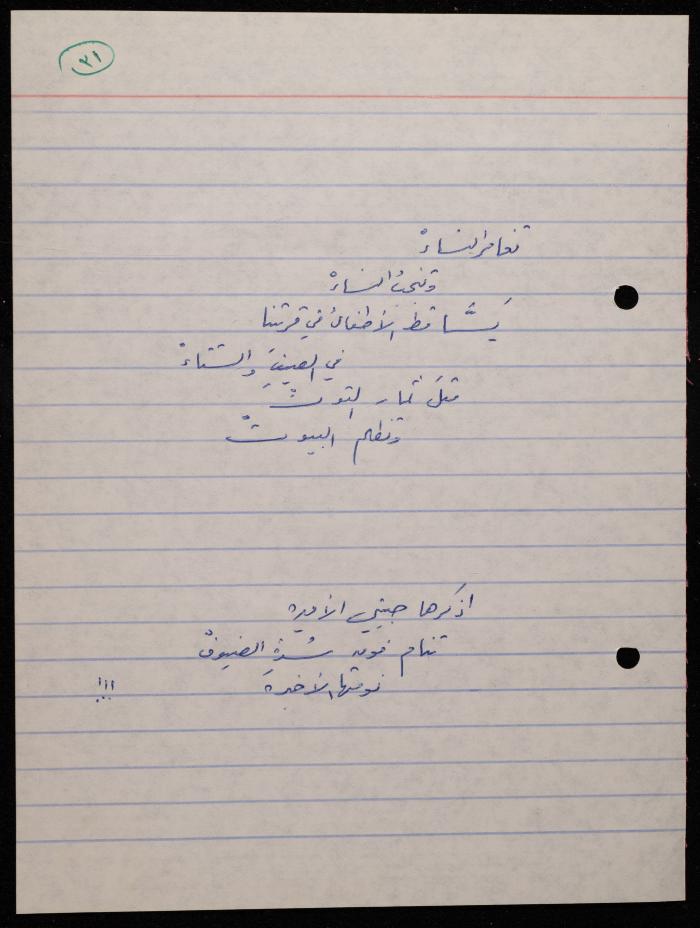 ٣١
تغامر النساءْ
وتنجبُ النساءْ
يَسَّاقط الأطفالُ في قريتنا
في الصيفِ والشتاءْ
مثلَ ثمار التوتْ
وتظلم البيوتْ
اذكرها حبيبتي الأميرة
تنام فوق سُدّةِ الضيوفْ
نومتها الأخيرةَ !!!